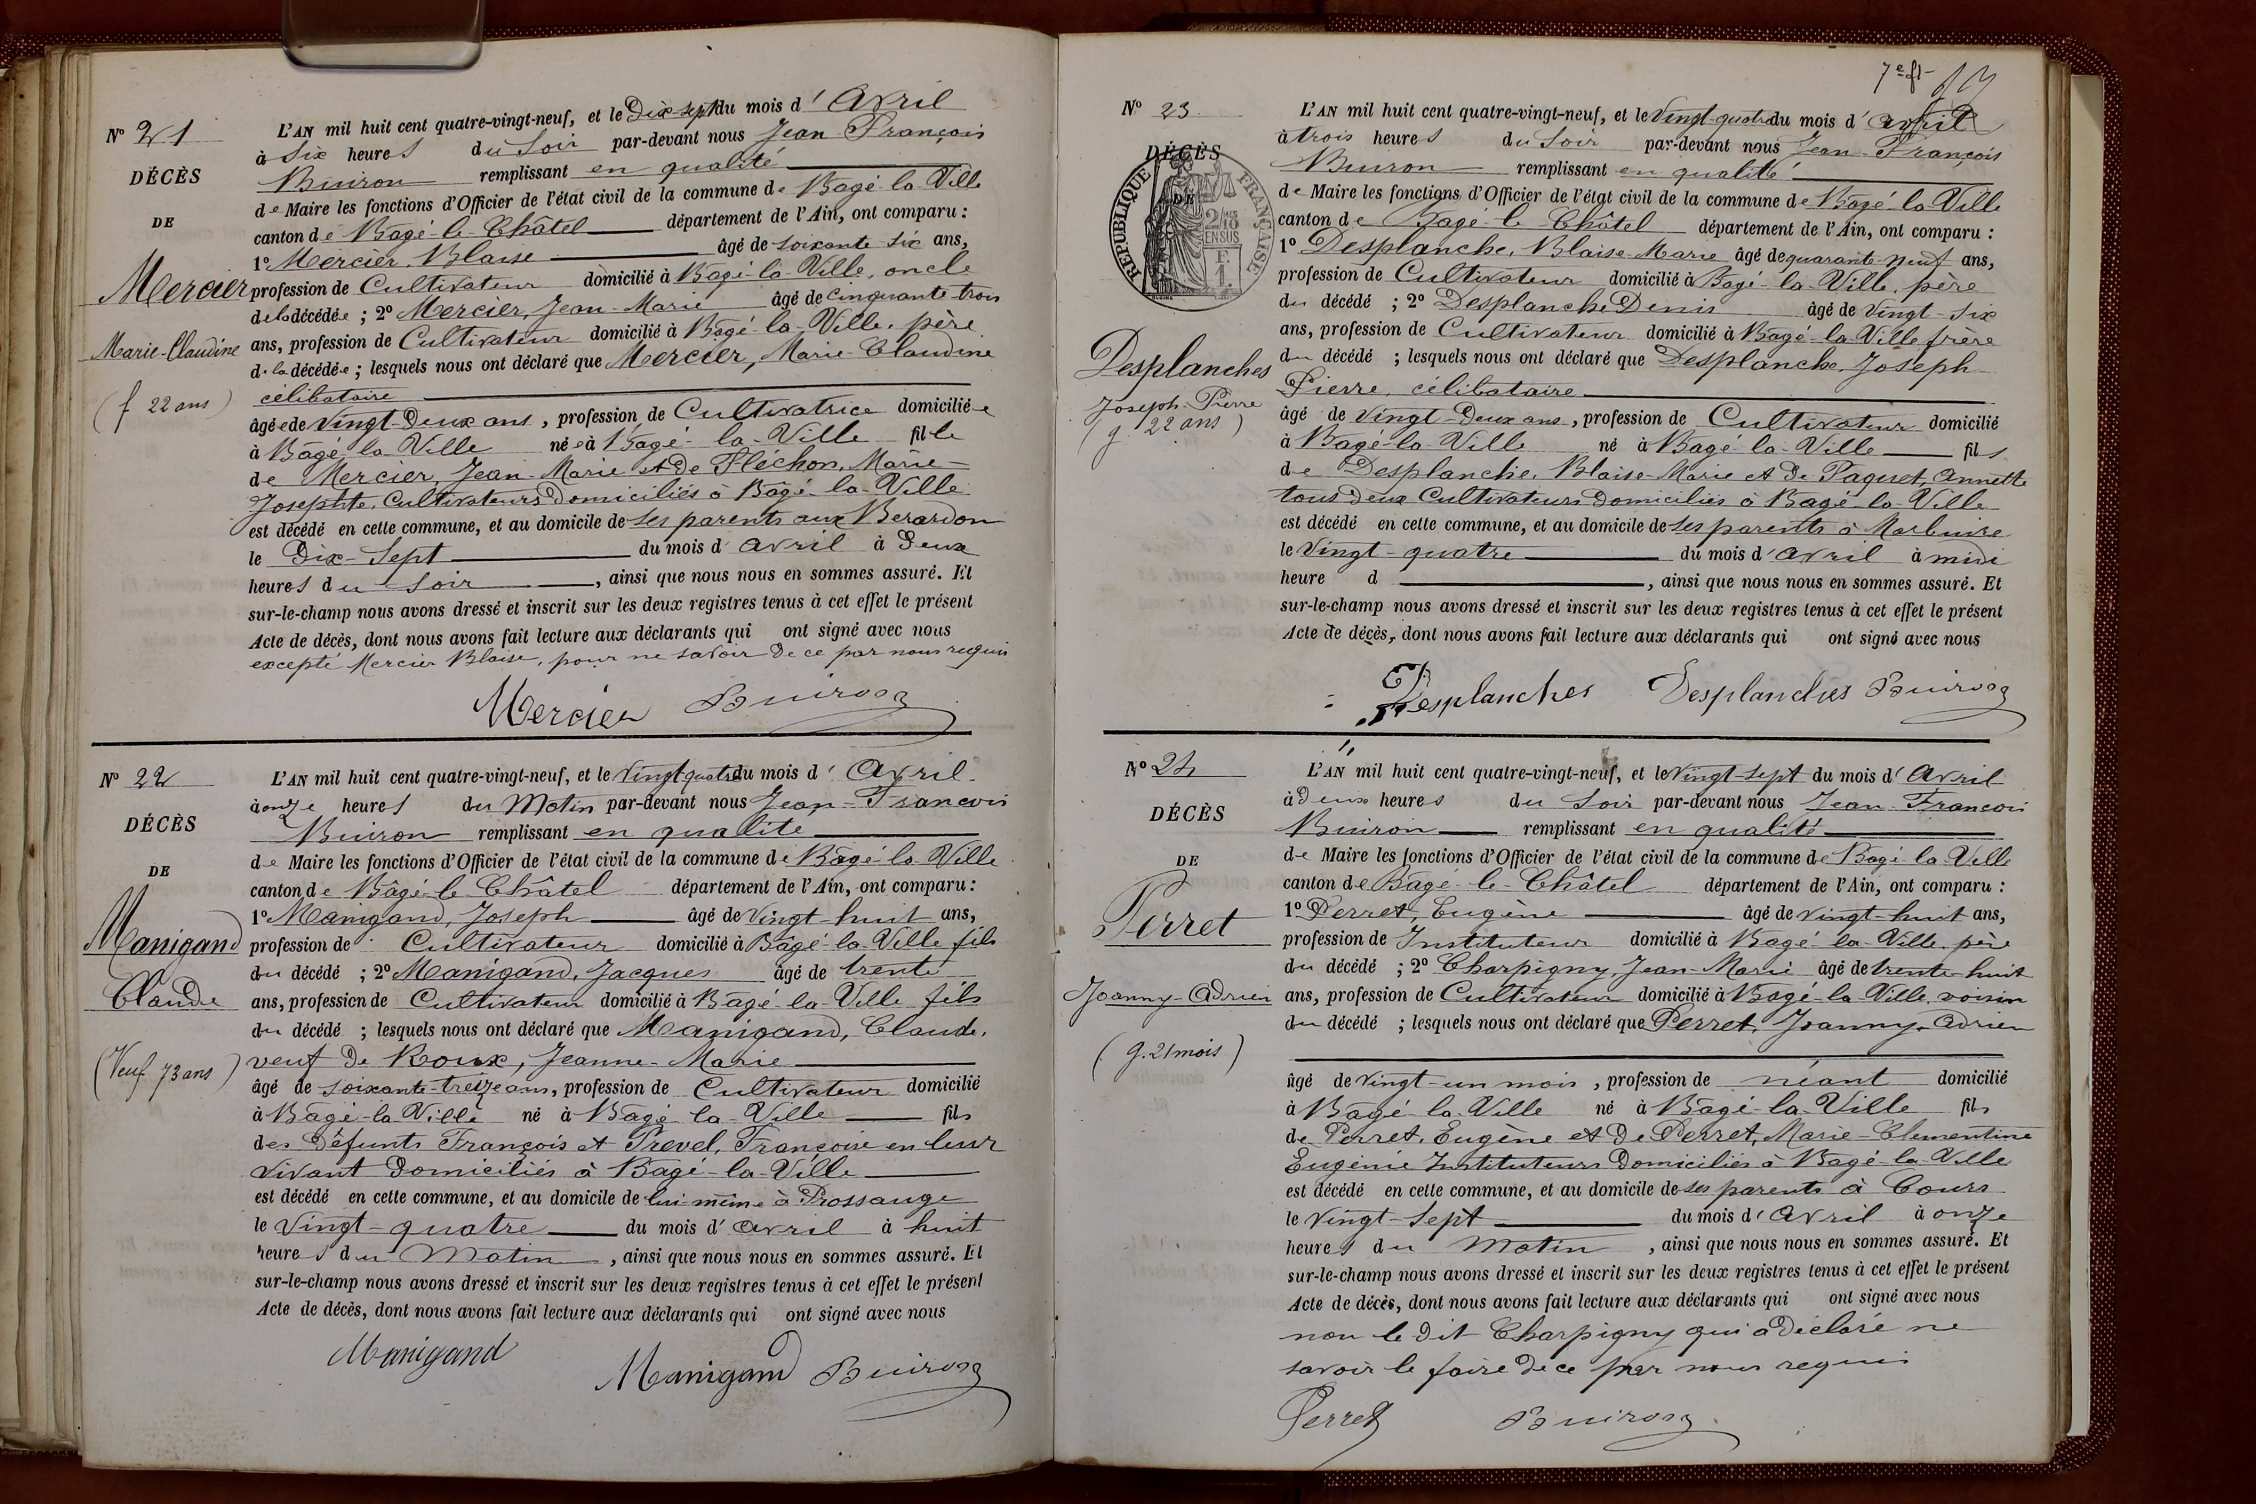 N° 21
DÉCÈS
DE
Mercier
Marie-Claudine
(f 22 ans)
L'AN mil huit cent quatre-vingt-neuf, et le Dix sept du mois d' Avril
à Six heures du Soir par-devant nous Jean-François
Buiron remplissant en qualité
de Maire les fonctions d'Officier de l'état civil de la commune de Bagé-la-Ville
canton de Bagé-le-Châtel département de l'Ain, ont comparu :
1° Mercier, Blaise âgé de soixante six ans,
profession de Cultivateur domicilié à Bagé-la-Ville, oncle
de la décédée ; 2° Mercier, Jean-Marie âgé de cinquante-trois
ans, profession de Cultivateur domicilié à Bagé-la-Ville, père
de la décédée ; lesquels nous ont déclaré que Mercier, Marie-Claudine
célibataire
âgée de Vingt-Deux ans, profession de Cultivatrice domiciliée
à Bâgé-la-Ville née à Bagé-la-Ville fille
de Mercier, Jean-Marie et de Pléchon, Marie-
Josephte, Cultivateurs Domiciliés à Bâgé-la-Ville
est décédé en cette commune, et au domicile de ses parents aux Berardon
le Dix-Sept du mois d' avril à Deux
heures du Soir, ainsi que nous nous en sommes assuré. Et
sur-le-champ nous avons dressé et inscrit sur les deux registres tenus à cet effet le présent
Acte de décès, dont nous avons fait lecture aux déclarants qui ont signé avec nous
excepté Mercier Blaise, pour ne savoir de ce par nous requis
Mercier Buiron
N° 22
DÉCÈS
DE
Manigand
Claude
(Veuf 73 ans)
L'AN mil huit cent quatre-vingt-neuf, et le Vingt-quatre du mois d' Avril
à onze heures du Matin par-devant nous Jean-François
Buiron remplissant en qualité
de Maire les fonctions d'Officier de l'état civil de la commune de Bâgé-la-Ville
canton de Bâgé-le-Châtel département de l'Ain, ont comparu :
1° Manigand, Joseph âgé de Vingt-huit ans,
profession de Cultivateur domicilié à Bagé-la-Ville fils
du décédé ; 2° Manigand, Jacques âgé de trente
ans, profession de Cultivateur domicilié à Bâgé-la-Ville fils
du décédé ; lesquels nous ont déclaré que Manigand, Claude,
veuf De Roux, Jeanne-Marie
âgé de soixante-treize ans, profession de Cultivateur domicilié
à Bâgé-la-Ville né à Bâgé-la-Ville fils
des Défunts François et Prevel, Françoise en leur
vivant Domiciliés à Bâgé-la-Ville
est décédé en cette commune, et au domicile de lui-même à Prossange
le Vingt-quatre du mois d' avril à huit
heures du Matin, ainsi que nous nous en sommes assuré. Et
sur-le-champ nous avons dressé et inscrit sur les deux registres tenus à cet effet le présent
Acte de décès, dont nous avons fait lecture aux déclarants qui ont signé avec nous
Manigand Manigand Buiron
7e ft
N° 23
DÉCÈS
DE
RÉPUBLIQUE FRANÇAISE
2/10 EN SUS
F. 1.
Desplanches
Joseph-Pierre
(g. 22 ans)
L'AN mil huit cent quatre-vingt-neuf, et le Vingt-quatre du mois d' avril
à trois heures du Soir par-devant nous Jean-François
Buiron remplissant en qualité
de Maire les fonctions d'Officier de l'état civil de la commune de Bagé-la-Ville
canton de Bagé-le-Châtel département de l'Ain, ont comparu :
1° Desplanche, Blaise-Marie âgé de quarante-neuf ans,
profession de Cultivateur domicilié à Bagé-la-Ville, père
du décédé ; 2° Desplanche Denis âgé de Vingt-Six
ans, profession de Cultivateur domicilié à Bâgé-la-Ville frère
du décédé ; lesquels nous ont déclaré que Desplanche, Joseph
Pierre, célibataire
âgé de Vingt-Deux ans, profession de Cultivateur domicilié
à Bagé-la-Ville né à Bagé-la-Ville fils
de Desplanche, Blaise-Marie et De Paquet, Annette
tous Deux Cultivateurs Domiciliés à Bagé-la-Ville
est décédé en cette commune, et au domicile de ses parents à Marbuise
le Vingt-quatre du mois d' avril à midi
heure d , ainsi que nous nous en sommes assuré. Et
sur-le-champ nous avons dressé et inscrit sur les deux registres tenus à cet effet le présent
Acte de décès, dont nous avons fait lecture aux déclarants qui ont signé avec nous
Desplanches Desplanches Buiron
N° 24
DÉCÈS
DE
Perret
Joanny-Adrien
(g. 21 mois)
L'AN mil huit cent quatre-vingt-neuf, et le Vingt-sept du mois d' Avril
à Deux heures du Soir par-devant nous Jean-François
Buiron remplissant en qualité
de Maire les fonctions d'Officier de l'état civil de la commune de Bagé-la-Ville
canton de Bâgé-le-Châtel département de l'Ain, ont comparu :
1° Perret, Eugène âgé de Vingt-huit ans,
profession de Instituteur domicilié à Bagé-la-Ville, père
du décédé ; 2° Charpigny, Jean-Marie âgé de trente-huit
ans, profession de Cultivateur domicilié à Bâgé-la-Ville, voisin
du décédé ; lesquels nous ont déclaré que Perret, Joanny-Adrien
âgé de Vingt-un mois, profession de néant domicilié
à Bâgé-la-Ville né à Bâgé-la-Ville fils
de Perret, Eugène et De Perret, Marie-Clementine
Eugénie Instituteurs Domiciliés à Bagé-la-Ville
est décédé en cette commune, et au domicile de ses parents à Cours
le Vingt-Sept du mois d' Avril à onze
heures du Matin, ainsi que nous nous en sommes assuré. Et
sur-le-champ nous avons dressé et inscrit sur les deux registres tenus à cet effet le présent
Acte de décès, dont nous avons fait lecture aux déclarants qui ont signé avec nous
non le Dit Charpigny qui a Déclaré ne
savoir le faire De ce par nous requis
Perret Buiron